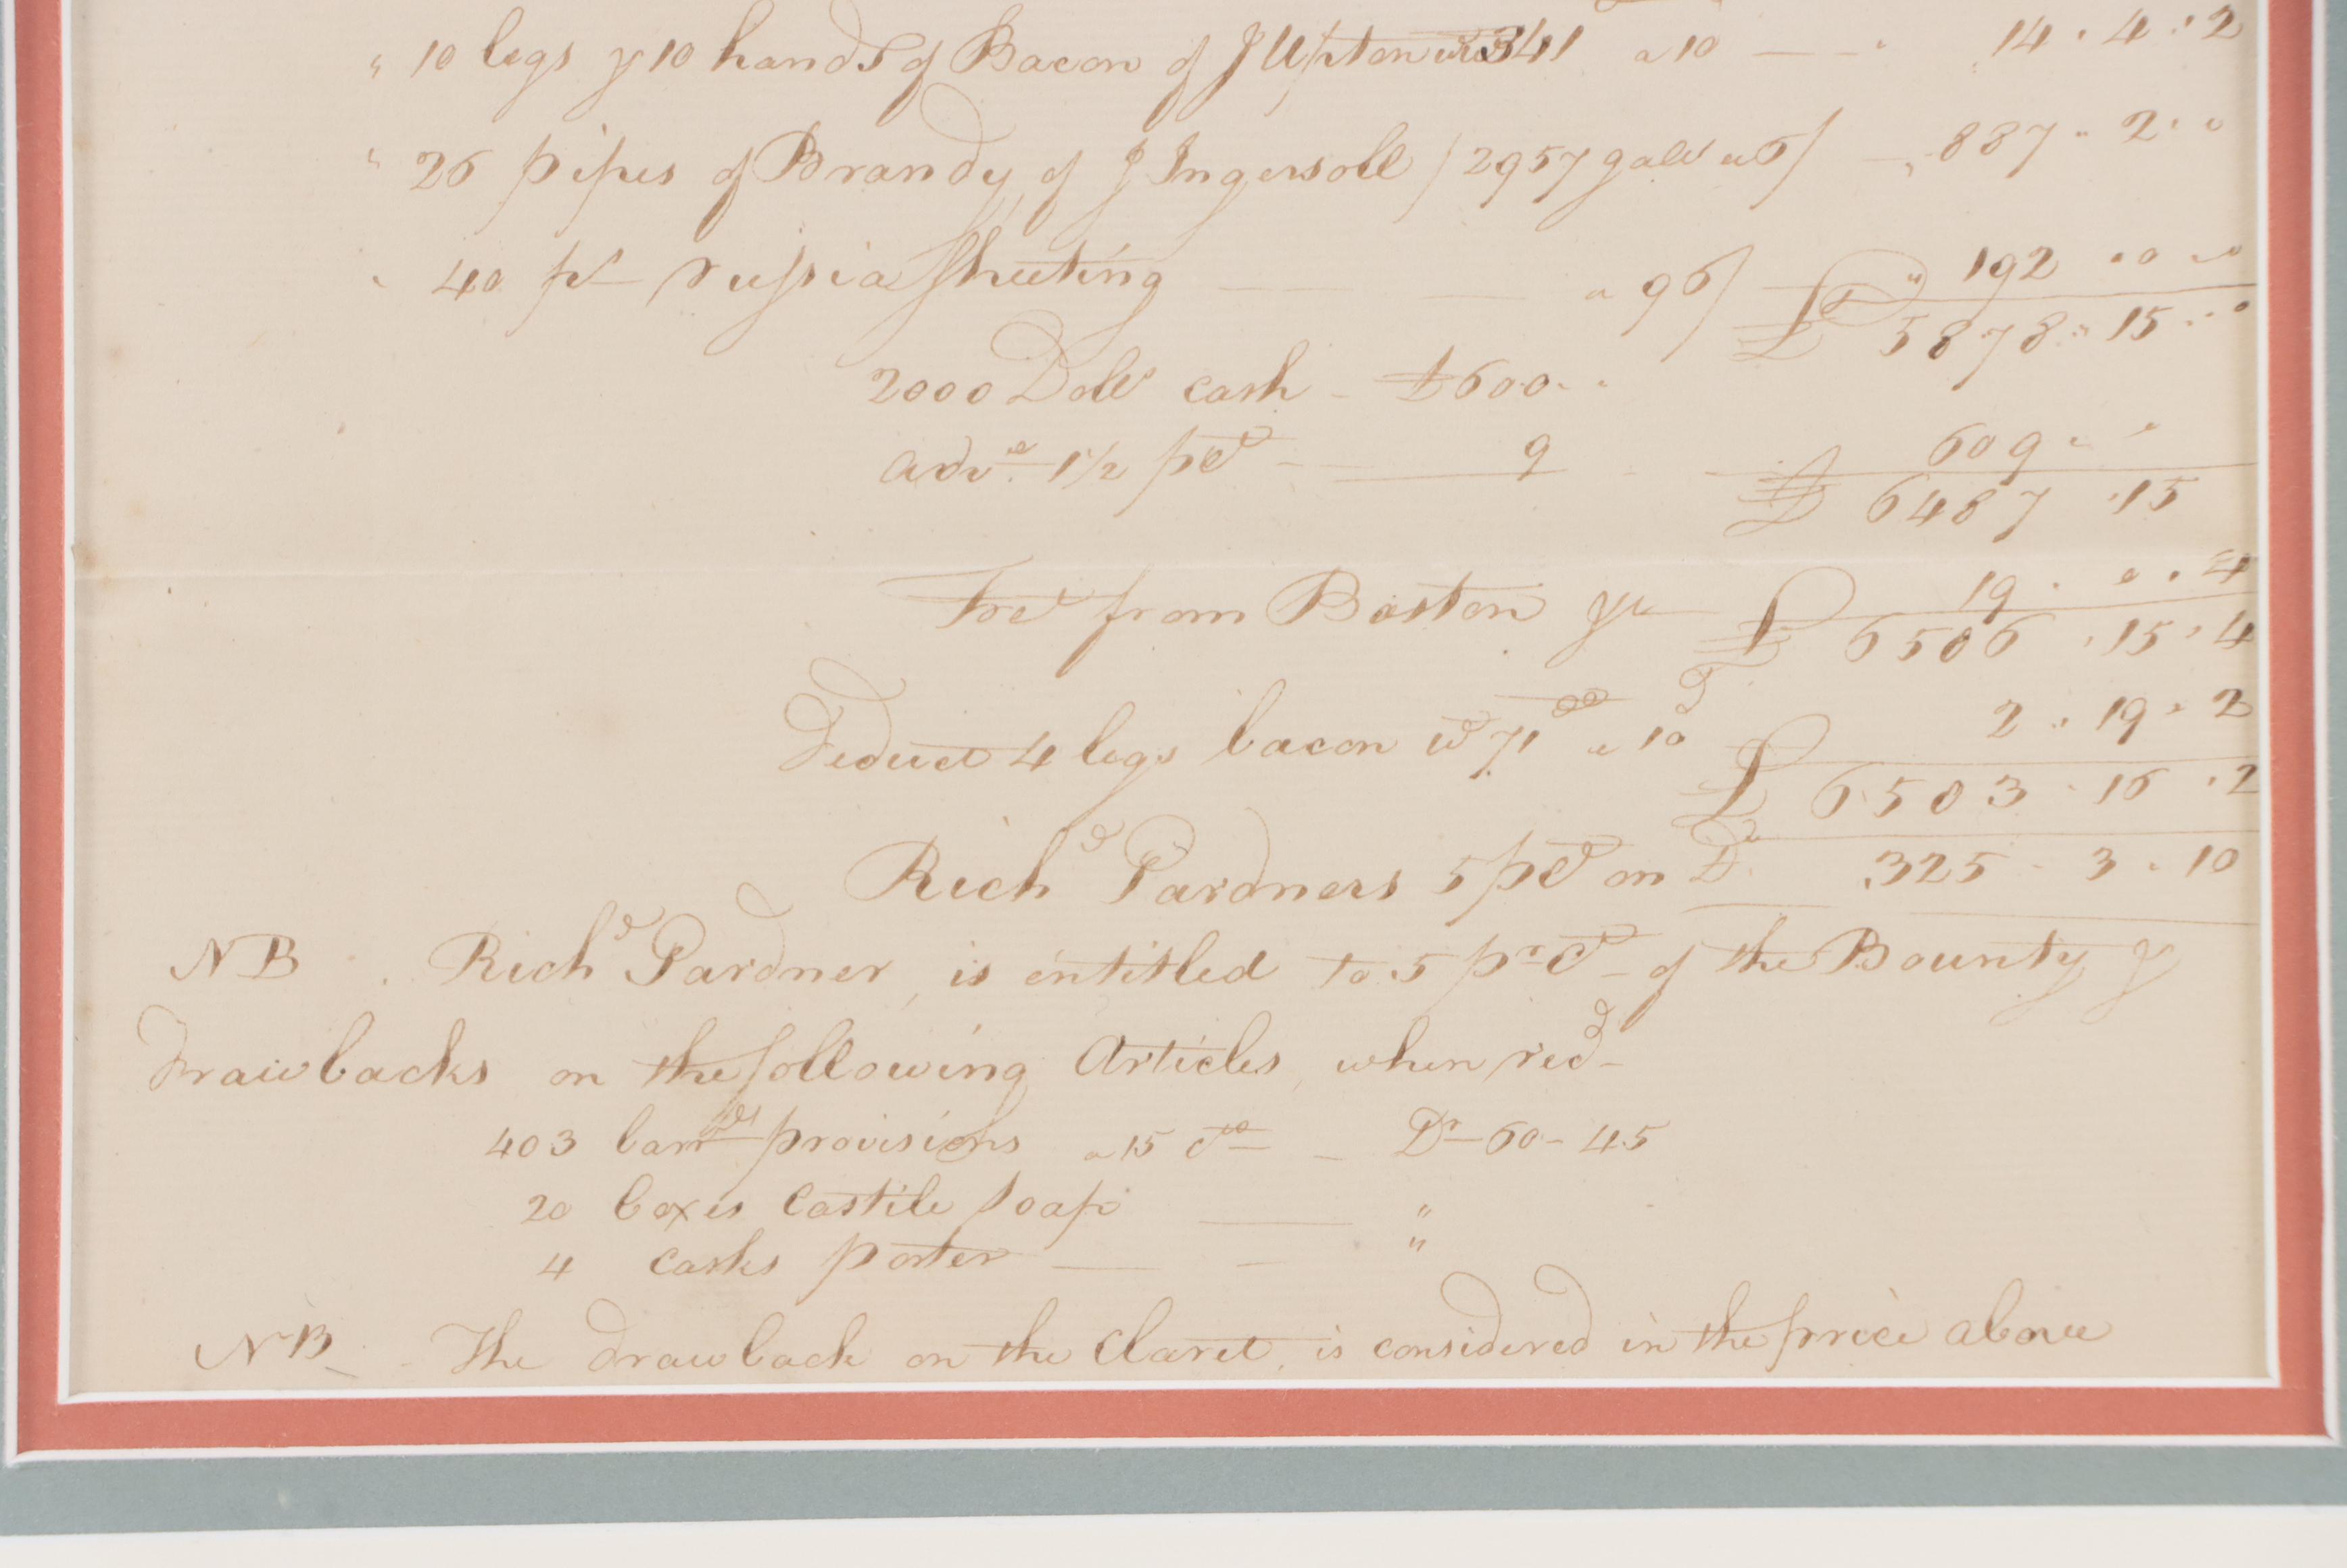 " 10 legs & 10 hands of Bacon of J Upton 341 a 10 — — " 14 . 4 . 2
" 26 pipes of Brandy of J Ingersoll / 2957 gals a 6/ — " 887 " 2 " "
" 40 ps russia sheeting — — a 96/ — " 192 " 0 " 0
£ 5878 " 15 " 0
2000 Dolls cash - £600 " "
adve 1½ pCt — 9 — 609 " "
£ 6487 . 15
Fret from Boston &c — 19 . 0 . 4
£ 6506 . 15 . 4
Deduct 4 legs bacon wt 71 a 10d 2 " 19 " 2
£ 6503 . 16 . 2
Richd Pardners 5 pCt on Do 325 - 3 . 10
NB . Richd Pardner, is entitled to 5 pr Ct of the Bounty &
Drawbacks on the following Articles, when recd
403 barrels provisions a 15 cts - Dr - 60 - 45
20 boxes Castile soap — "
4 casks porter — - "
NB - The drawback on the Claret, is considered in the price above